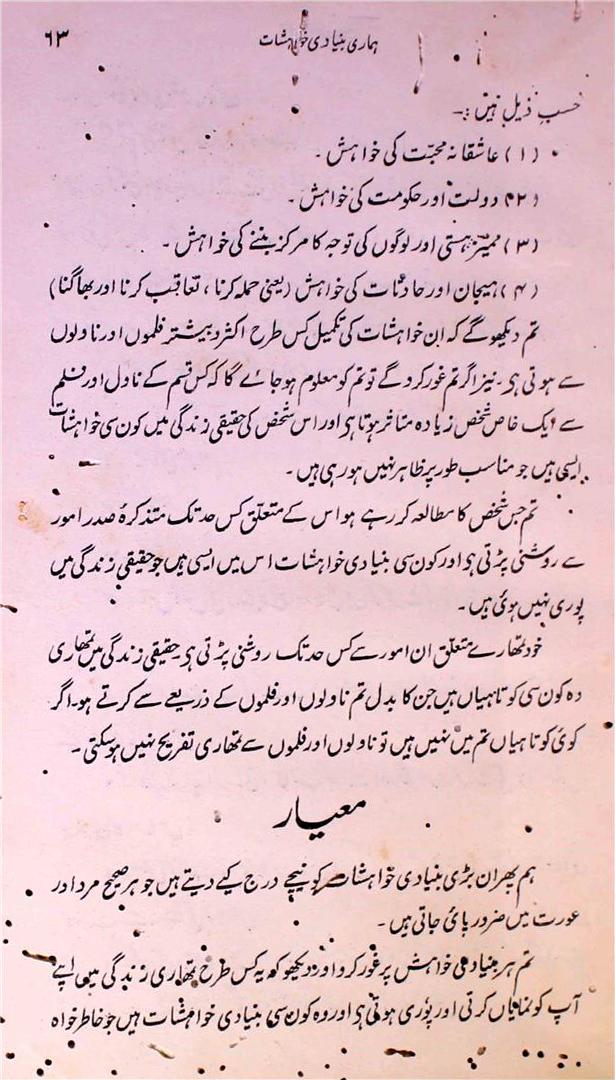 ہماری بنیادی خواہشات ۶۳
حسب ذیل ہیں :۔
(۱) عاشقانہ محبّت کی خواہش ۔
(۲) دولت اور حکومت کی خواہش ۔
(۳) ممیّز ہستی اور لوگوں کی توجہ کا مرکز بننے کی خواہش ۔
(۴) ہیجان اور حادثات کی خواہش (یعنی حملہ کرنا ، تعاقب کرنا اور بھاگنا)
تم دیکھو گے کہ ان خواہشات کی تکمیل کس طرح اکثر و بیشتر فلموں اور ناولوں
سے ہوتی ہی ۔ نیز اگر تم غور کرو گے تو تم کو معلوم ہو جائے گا کہ کس قسم کے ناول اور فلم
سے ایک خاص شخص زیادہ متاثر ہوتا ہی اور اس شخص کی حقیقی زندگی میں کون سی خواہشات
ایسی ہیں جو مناسب طور پر ظاہر نہیں ہو رہی ہیں ۔
تم جس شخص کا مطالعہ کر رہے ہو اس کے متعلّق کس حد تک متذکرۂ صدر امور
سے روشنی پڑتی ہی اور کون سی بنیادی خواہشات اس میں ایسی ہیں جو حقیقی زندگی میں
پوری نہیں ہوئی ہیں ۔
خود تمھارے متعلّق ان امور سے کس حد تک روشنی پڑتی ہی ۔ حقیقی زندگی میں تمھاری
وہ کون سی کوتاہیاں ہیں جن کا بدل تم ناولوں اور فلموں کے ذریعے سے کرتے ہو ۔ اگر
کوئی کوتاہیاں تم میں نہیں ہیں تو ناولوں اور فلموں سے تمھاری تفریح نہیں ہو سکتی ۔
معیار
ہم پھر ان بڑی بنیادی خواہشات کو نیچے درج کیے دیتے ہیں جو ہر صحیح مرد اور
عورت میں ضرور پائی جاتی ہیں ۔
تم ہر بنیادی خواہش پر غور کرو اور دیکھو کہ یہ کس طرح تمھاری زندگی میں اپنے
آپ کو نمایاں کرتی اور پوری ہوتی ہی اور وہ کون سی بنیادی خواہشات ہیں جو خاطر خواہ